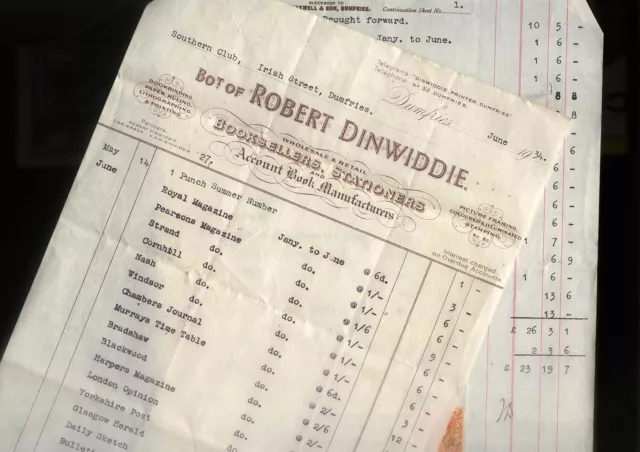 & SON, DUMFRIES.
Continuation Sheet No. 1.
Brought forward.
Jany. to June.
10 5 -
1 6 -
1 6 -
1 6 -
Southern Club, Irish Street, Dumfries.
Telegrams: "DINWIDDIE, PRINTER, DUMFRIES"
Telephone: No 52 DUMFRIES.
Dumfries, June 1934.
BOT OF ROBERT DINWIDDIE.
BOOKBINDING
PAPER RULING
LITHOGRAPHING
& PRINTING.
WHOLESALE & RETAIL
BOOKSELLERS, STATIONERS
AND
Account Book Manufacturers
PICTURE FRAMING,
COLOURED & ILLUMINATED
STAMPING,
&c. &c.
Interest charged
on Overdue Accounts
May 14 1 Punch Summer Number 1 -
June 27. Royal Magazine Jany. to June @ 6d. 3 -
Pearsons Magazine do. @ 1/- 6 -
Strand do. @ 1/- 6 -
Cornhill do. @ 1/6 9 -
Nash do. @ 1/- 6 -
Windsor do. @ 1/- 6 -
Chambers Journal do. @ 1/- 6 -
Murrays Time Table do. @ 6d. 3 -
Bradshaw do. @ 2/- 12 -
Blackwood do. @ 2/6
Harpers Magazine do. @ 2/-
London Opinion do.
Yorkshire Post
Glasgow Herald
Daily Sketch
13 6
13 -
£ 26 3 1
2 3 6
£ 23 19 7